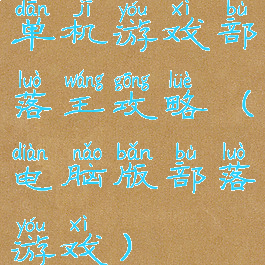 dān jī yóu xì bù
单机游戏部
luò wáng gōng lüè
落王攻略(
diàn nǎo bǎn bù luò
电脑版部落
yóu xì
游戏)